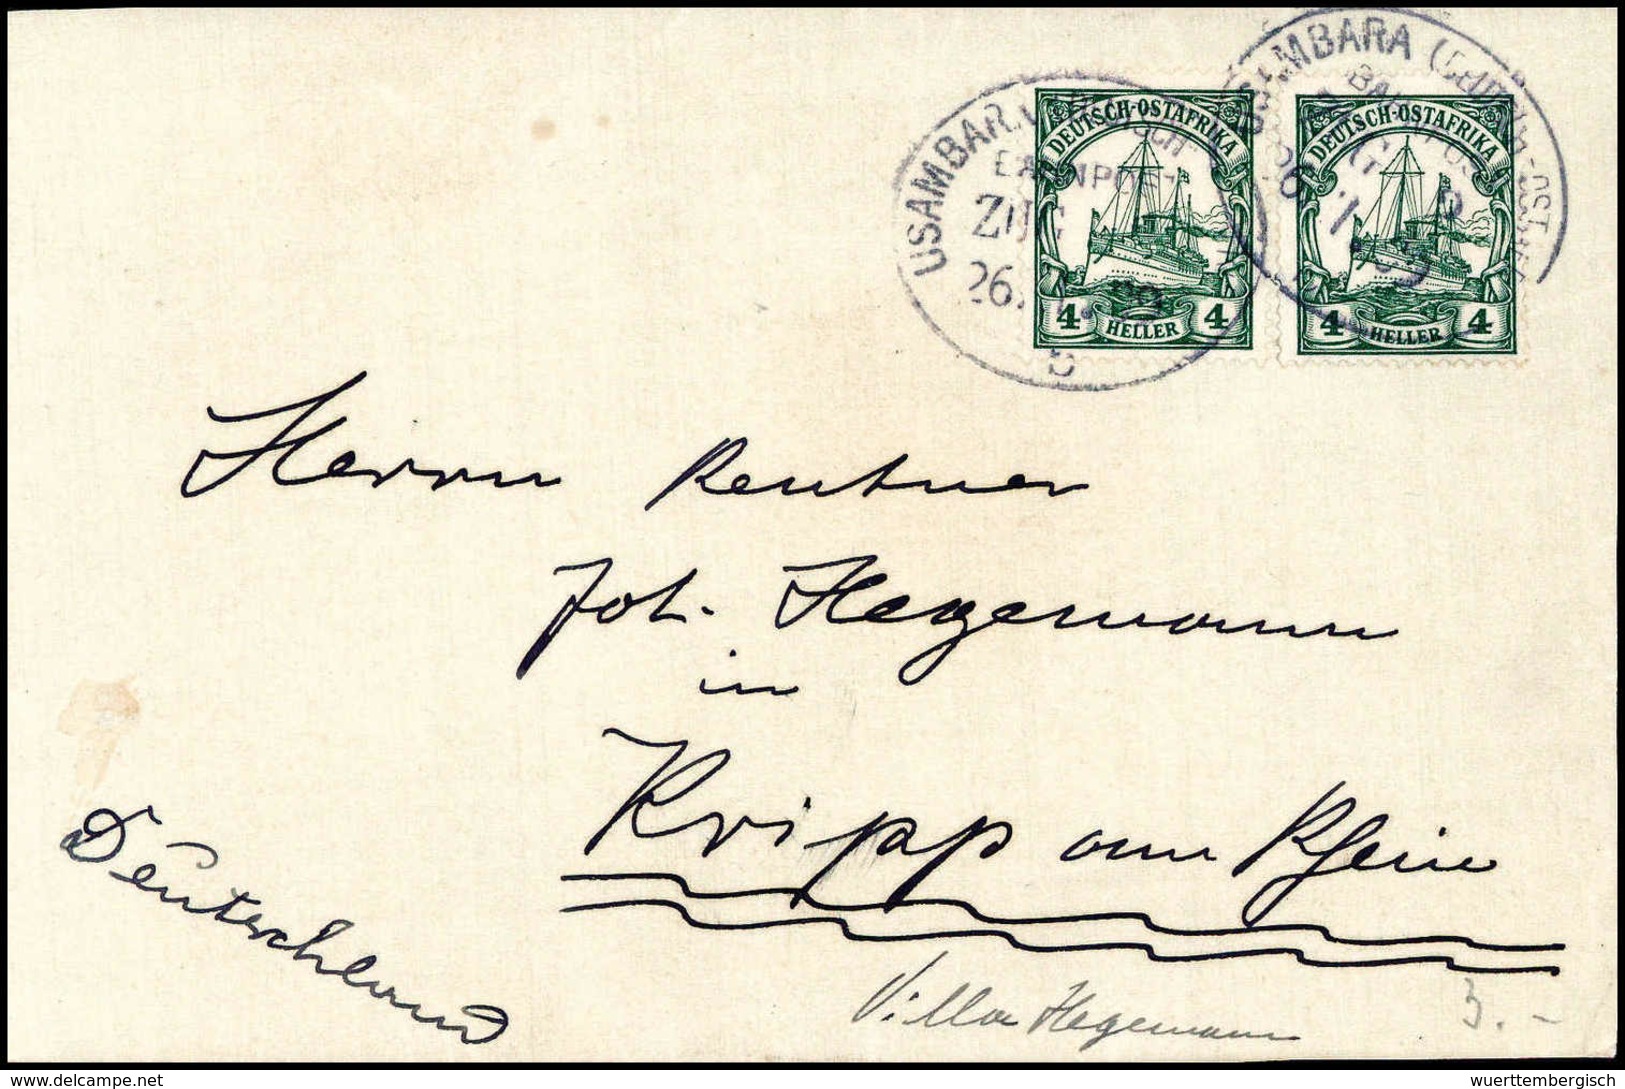 USAMBARA
BAHNPOST
ZUG
26.
b
USAMBARA (Deutsch-Ost-
26.
DEUTSCH-OSTAFRIKA
4 HELLER 4
DEUTSCH-OSTAFRIKA
4 HELLER 4
Herrn Rentner
Joh. Hegemann
in
Kripp am Rhein
Deutschland
Villa Hegemann
3.-
© delcampe.net
wuerttembergisch